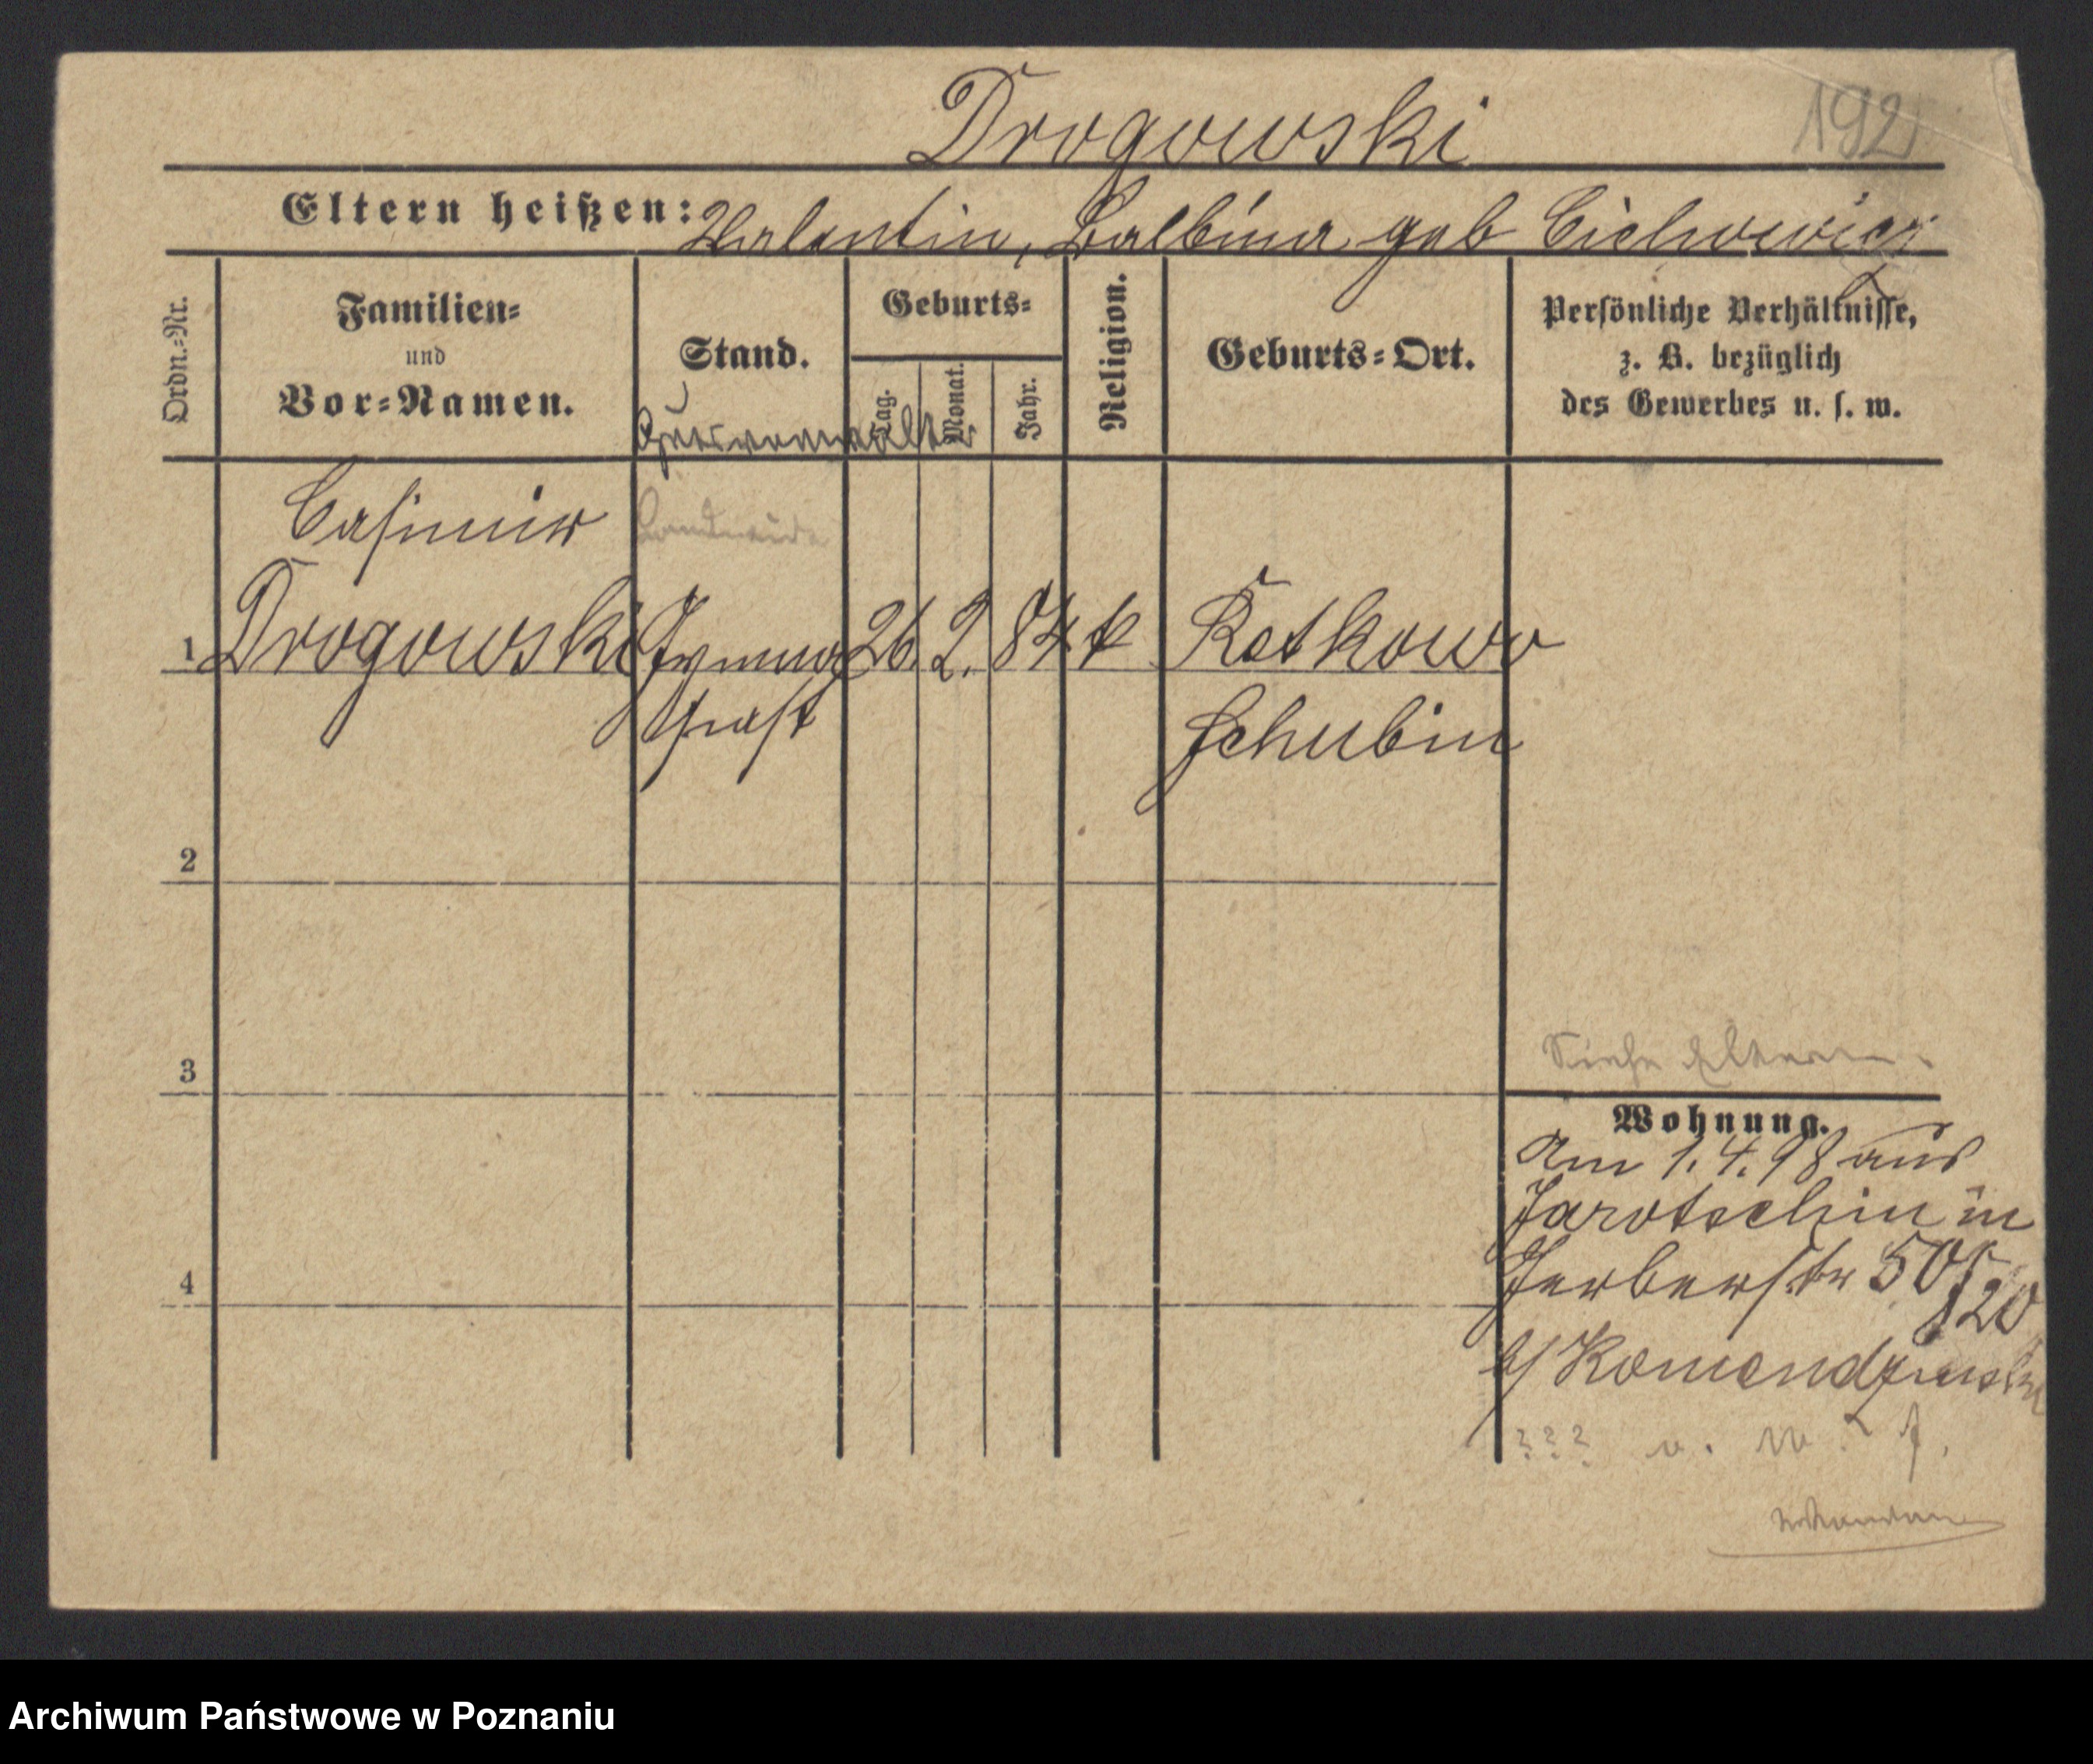 Drogowski
192
Eltern heißen: Valentin, Balbina geb Cichowicz
Ordn.=Nr.
Familien=
und
Vor=Namen.
Stand.
Gutsverwalter
Geburts=
Tag.
Monat.
Jahr.
Religion.
Geburts=Ort.
Persönliche Verhältnisse,
z. B. bezüglich
des Gewerbes u. s. w.
Casimir
1 Drogowski Gymna 26. 2. 84 k Retkowo
siast Schubin
2
3
4
Siehe Eltern.
Wohnung.
Am 1.4.98 aus
Jarotschin in
Gerberstr 50
b/
??? v. w. f.
Archiwum Państwowe w Poznaniu